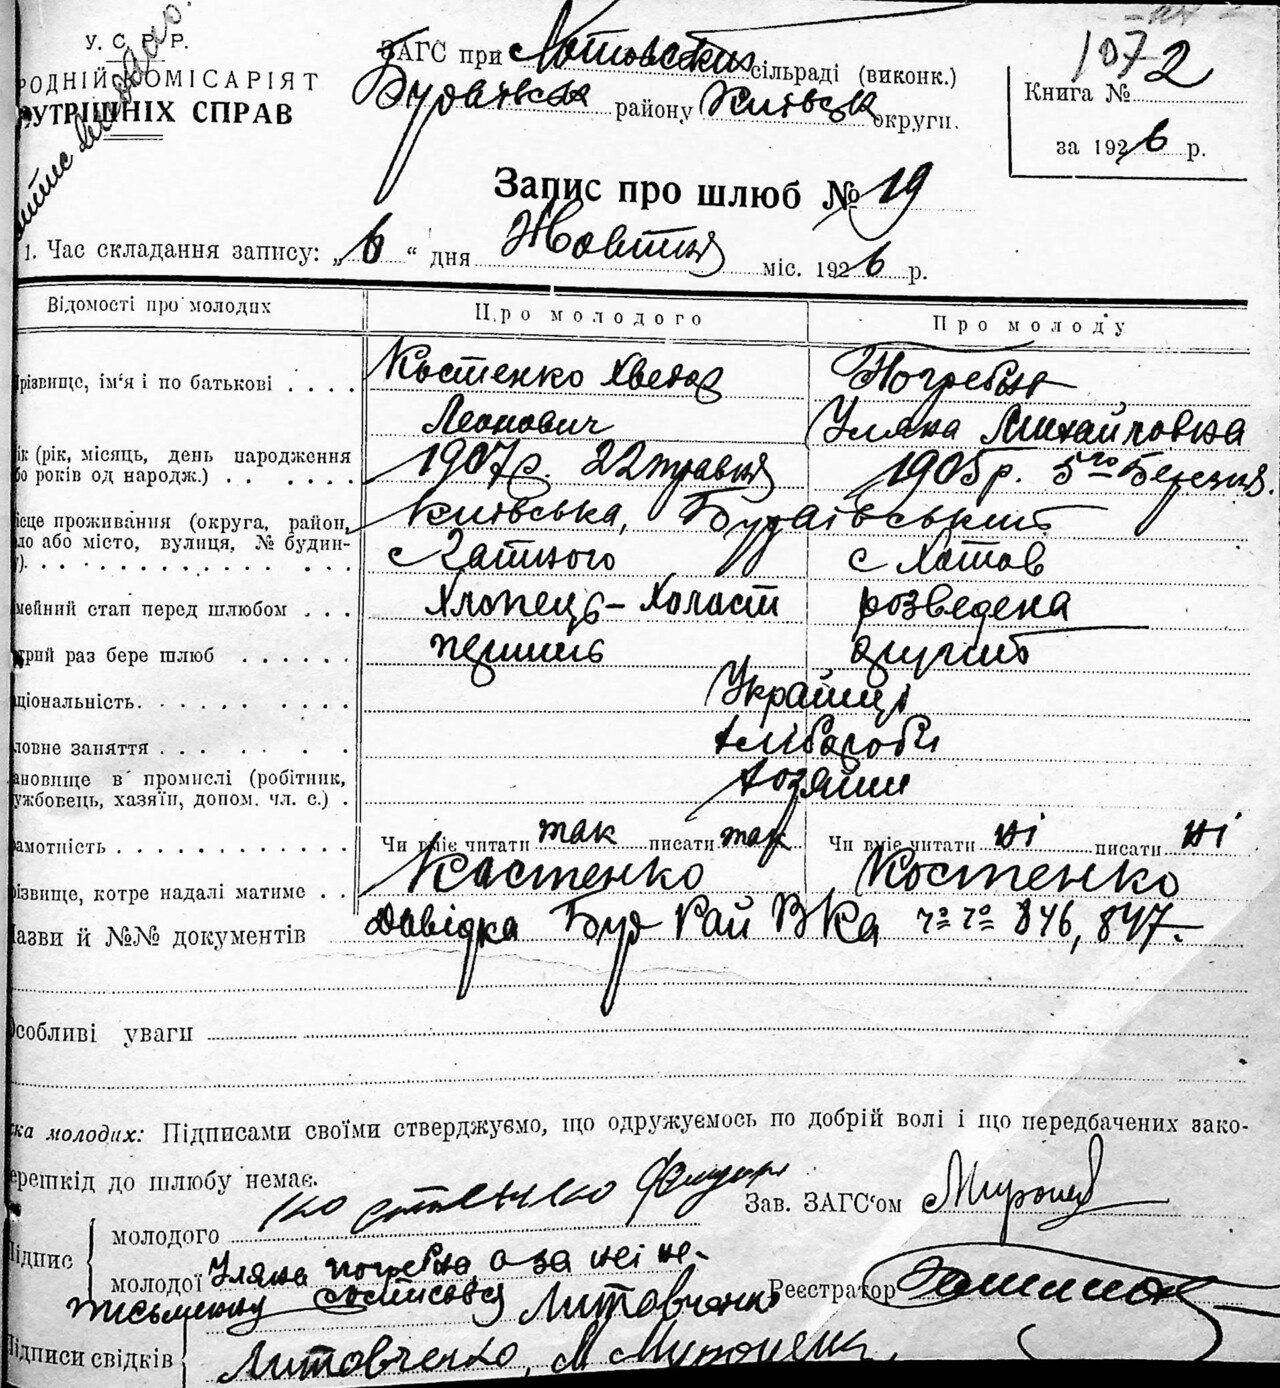 У. С. Р. Р.
РОДНІЙ КОМІСАРІЯТ
УТРІШНІХ СПРАВ
ЗАГС при Хотовській сільраді (виконк.)
Будаївська району Київська округи.
1072
Книга №
за 1926 р.
Запис про шлюб № 19
1. Час складання запису: „6“ дня Жовтня міс. 1926 р.
Відомості про молодих Про молодого Про молоду
різвище, ім'я і по батькові Костенко Хведор Погребна
Леонович Уляна Михайловна
ік (рік, місяць, день народження
бо років од народж.) 1907 р. 22 травня 1905 р. 5го Березня.
ісце проживання (округа, район, Київська, Будаївський
ло або місто, вулиця, № будин- с Гатного с Хотов
у).
мейний стап перед шлюбом Хлопець - Холаст розведена
трий раз бере шлюб перший другий
аціональність. Українці
ловне заняття хлібороби
ановище в промислі (робітник, хозяїни
ужбовець, хазяїн, допом. чл. с.)
амотність Чи вміє читати так писати так Чи вміє читати ні писати ні
різвище, котре надалі матиме Костенко Костенко
азви й №№ документів Довідка Буд Рай ВКа 846, 847.
собливі уваги
ка молодих: Підписами своїми стверджуємо, що одружуємось по добрій волі і що передбачених зако-
ерешкід до шлюбу немає.
Підпис молодого Костенко Зав. ЗАГС'ом
молодої Уляна погребна а за неї не-
письменну Литовченко Реєстратор
ідписи свідків Литовченко,